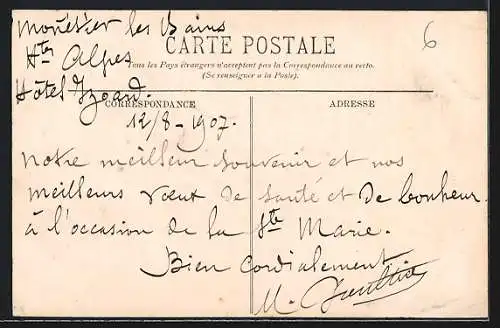 Monêtier les Bains
Htes Alpes
Hôtel Izoard.
6
CARTE POSTALE
Tous les Pays étrangers n'acceptent pas la Correspondance au recto.
(Se renseigner a la Poste).
CORRESPONDANCE
ADRESSE
12/8-1907.
Notre meilleur souvenir et nos
meilleurs vœux de santé et de bonheur
à l'occasion de la Ste Marie.
Bien cordialement
M.